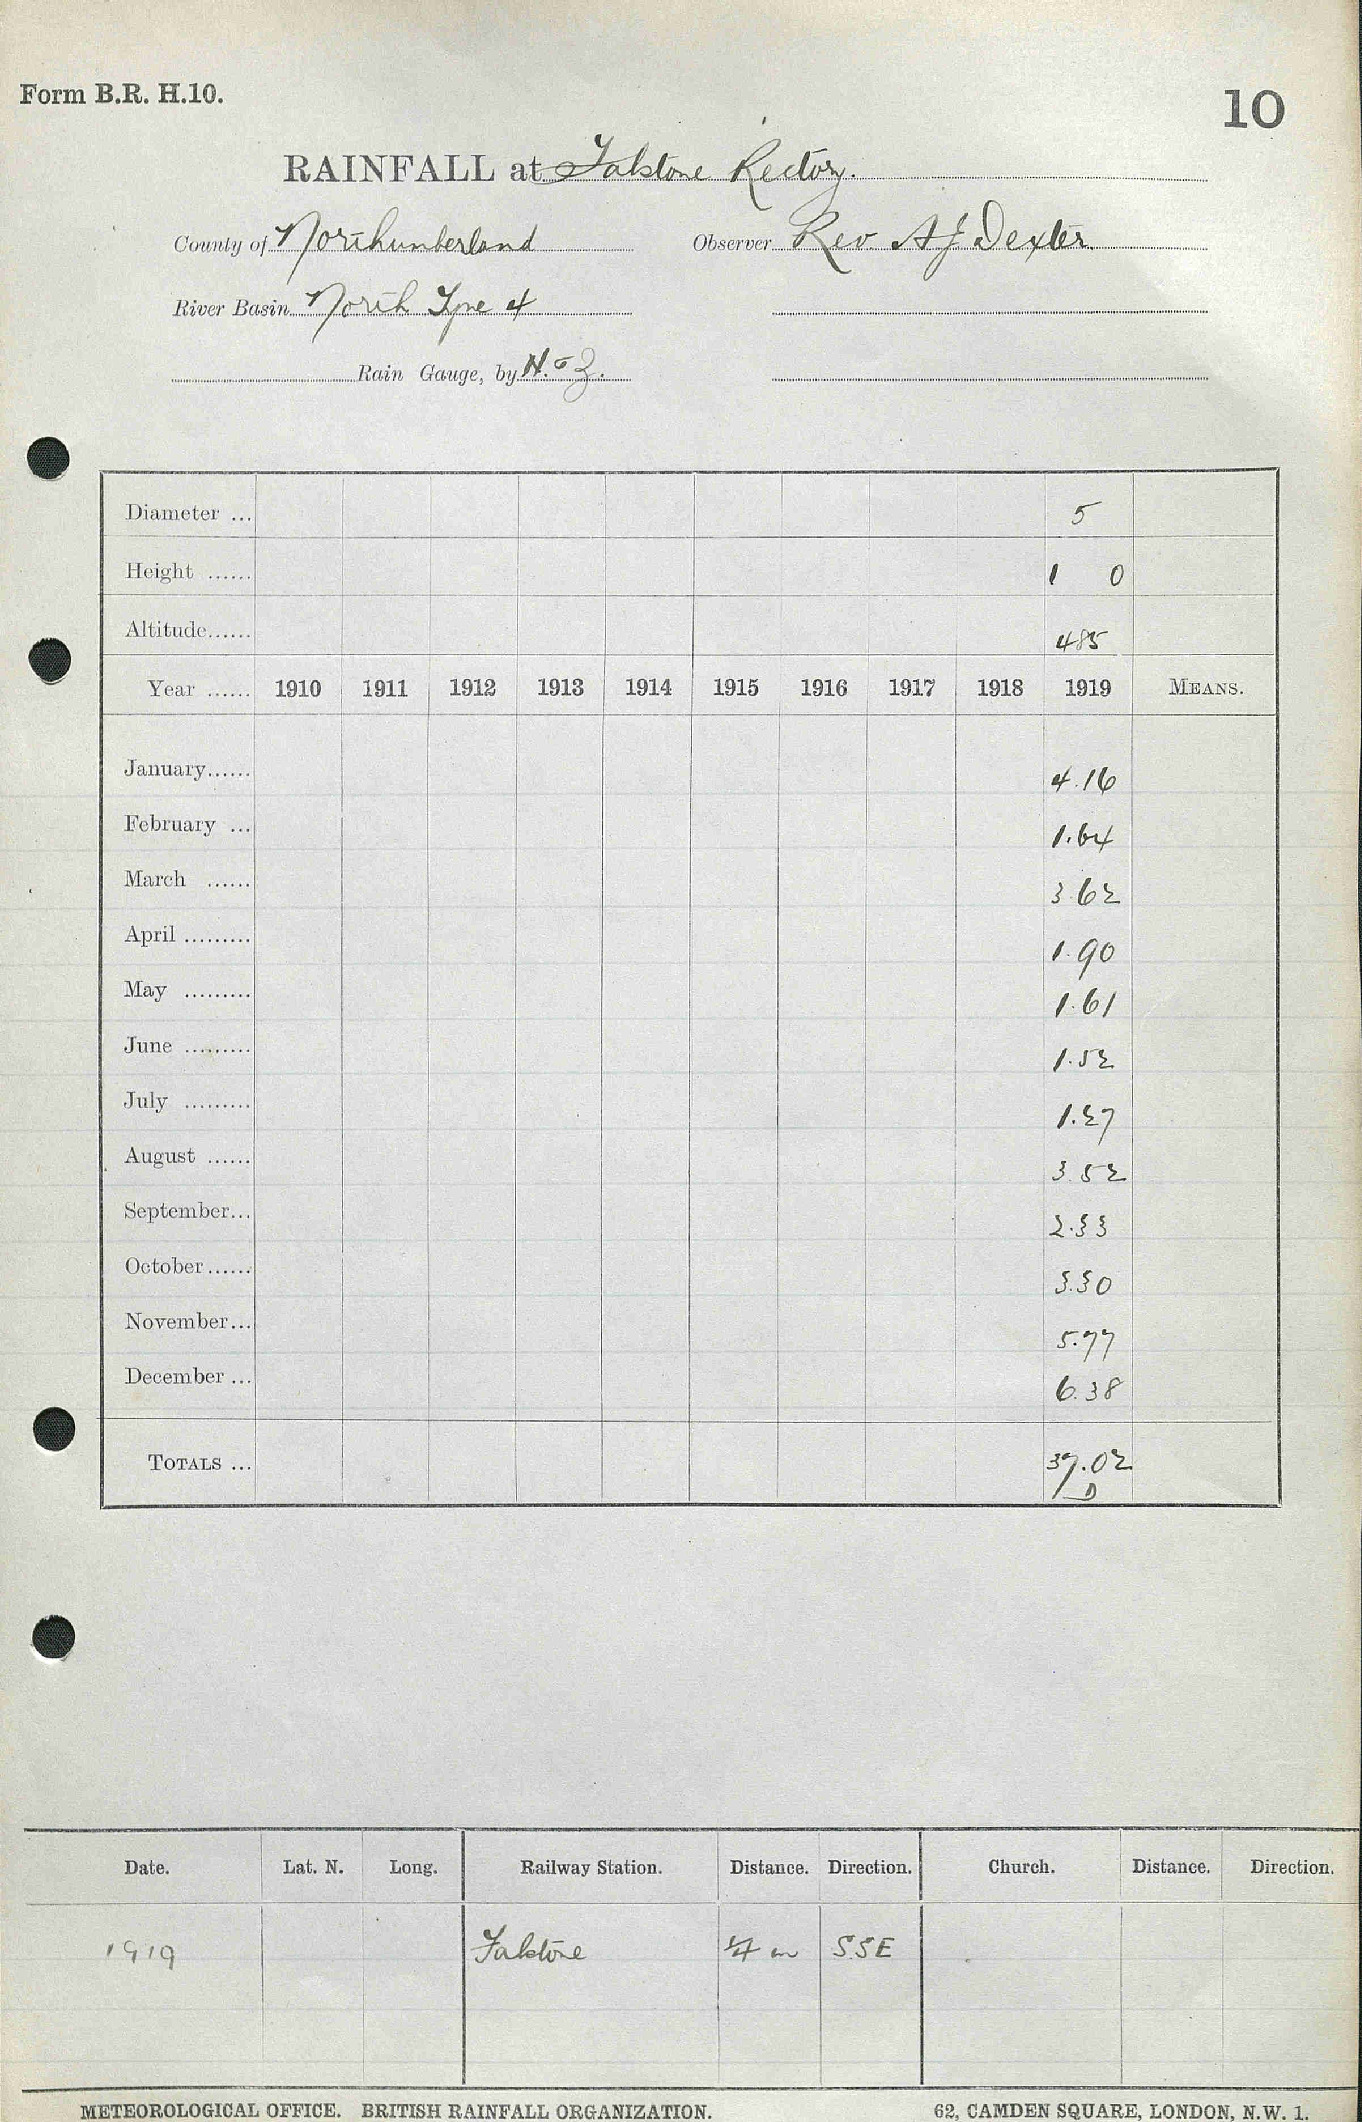 Form B.R. H.10.
10
RAINFALL at Falstone Rectory.
County of Northumberland Observer Rev. A J Dexter
River Basin North Tyne 4
Rain Gauge, by N. & Z.
Diameter ... 5
Height ...... 1 0
Altitude...... 485
Year ...... 1910 1911 1912 1913 1914 1915 1916 1917 1918 1919 MEANS.
January...... 4.16
February ... 1.64
March ...... 3.62
April ......... 1.90
May ......... 1.61
June ......... 1.52
July ......... 1.27
August ...... 3.52
September... 2.33
October...... 3.30
November... 5.77
December ... 6.38
TOTALS ... 37.02
D
Date. Lat. N. Long. Railway Station. Distance. Direction. Church. Distance. Direction.
1919 Falstone 1/4 m SSE
METEOROLOGICAL OFFICE. BRITISH RAINFALL ORGANIZATION. 62, CAMDEN SQUARE, LONDON, N.W. 1.